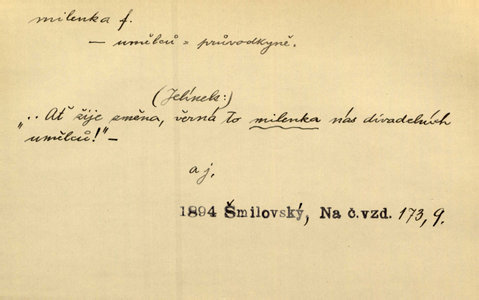 milenka f.
— umělců = průvodkyně.
(Jelínek:)
„.. Ať žije změna, věrná to milenka nás divadelních
umělců!"—
aj.
1894 Šmilovský, Na č.vzd. 173,9.